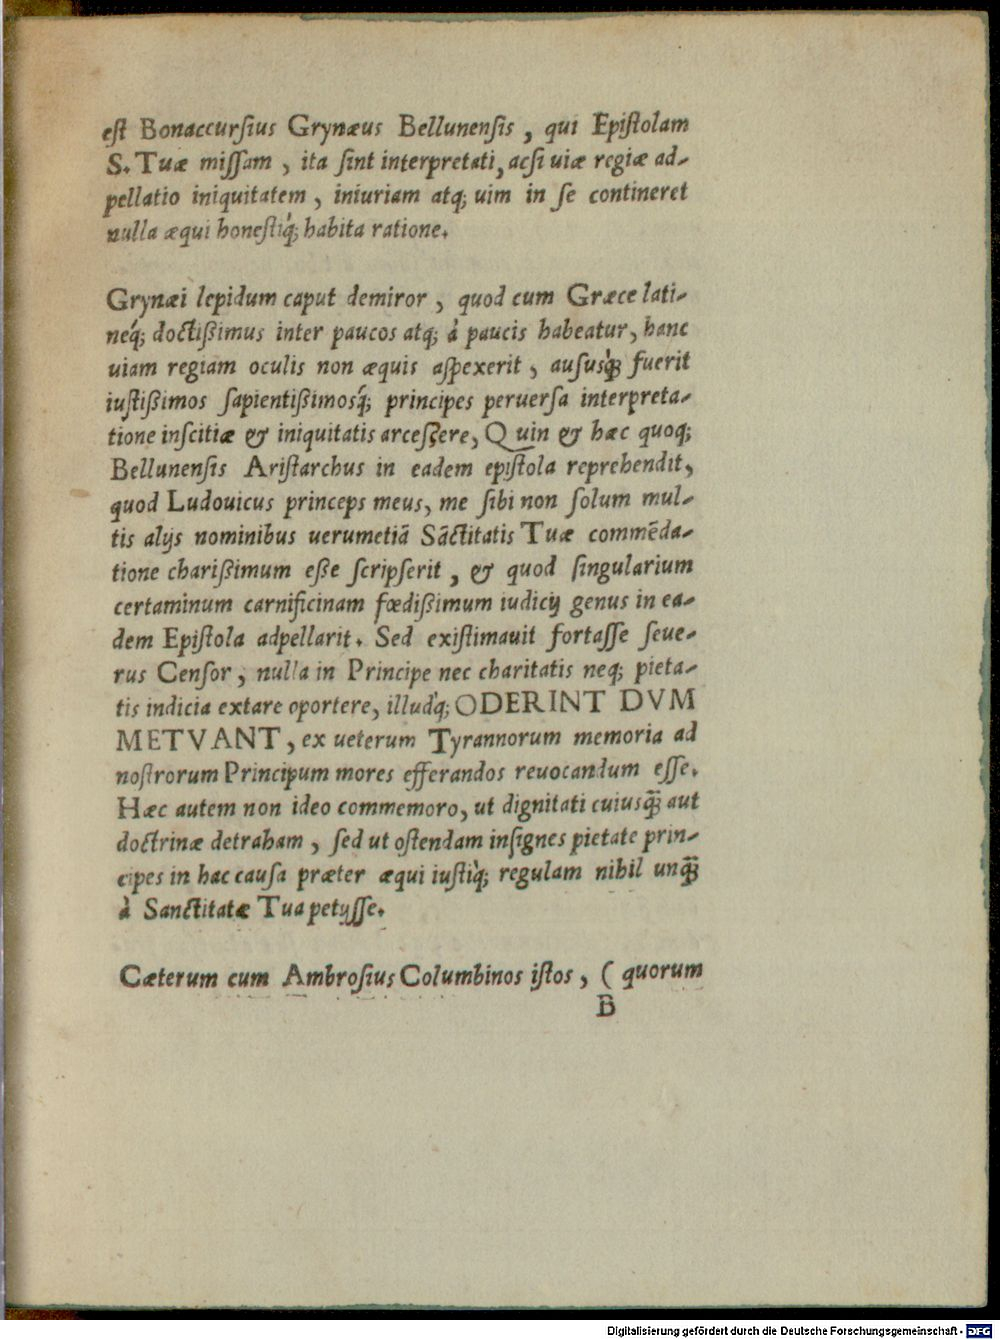 est Bonaccursius Grynæus Bellunensis, qui Epistolam
S. Tuæ missam, ita sint interpretati, acsi uiæ regiæ ad-
pellatio iniquitatem, iniuriam atq; uim in se contineret
nulla æqui honestiq́; habita ratione.
Grynæi lepidum caput demiror, quod cum Græce lati-
neq́; doctißimus inter paucos atq; à paucis habeatur, hanc
uiam regiam oculis non æquis aspexerit, aususq́; fuerit
iustißimos sapientißimosq́; principes peruersa interpreta-
tione inscitiæ & iniquitatis arcesçere, Quin & hæc quoq;
Bellunensis Aristarchus in eadem epistola reprehendit,
quod Ludouicus princeps meus, me sibi non solum mul-
tis alijs nominibus uerumetiã Sãctitatis Tuæ commẽda-
tione charißimum eße scripserit, & quod singularium
certaminum carnificinam fœdißimum iudicij genus in ea-
dem Epistola adpellarit. Sed existimauit fortasse seue-
rus Censor, nulla in Principe nec charitatis neq; pieta-
tis indicia extare oportere, illudq́; ODERINT DVM
METVANT, ex ueterum Tyrannorum memoria ad
nostrorum Principum mores efferandos reuocandum esse.
Hæc autem non ideo commemoro, ut dignitati cuiusq̃ aut
doctrinæ detraham, sed ut ostendam insignes pietate prin-
cipes in hac causa præter æqui iustiq́; regulam nihil unq̃
à Sanctitatæ Tua petijsse.
Cæterum cum Ambrosius Columbinos istos, (quorum
B
Digitalisierung gefördert durch die Deutsche Forschungsgemeinschaft - DFG